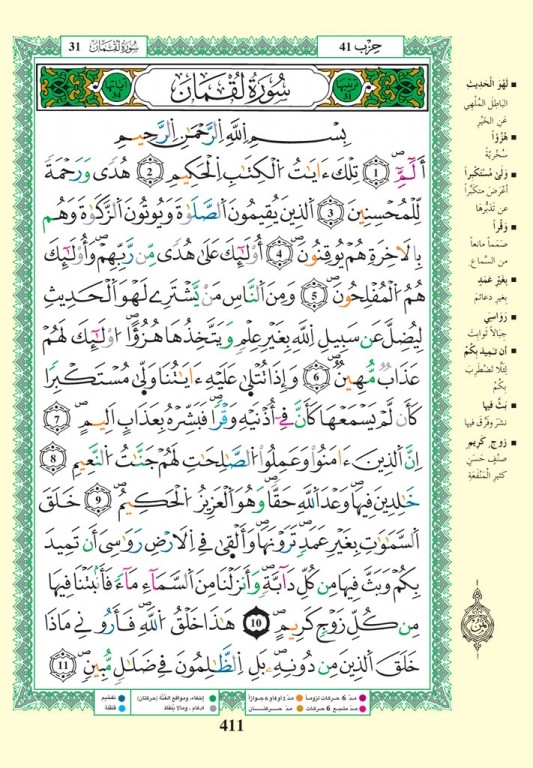 سُورَةُ لُقْمَان 31
حِزْب 41
ترتيبها 31
سُورَةُ لُقْمَانَ
آياتها 34
بِسْمِ اِللَّهِ اِلرَّحْمَٰنِ اِلرَّحِيمِ
أَلَٓمِّٓۖ 1 تِلْكَ ءَايَٰتُ اُلْكِتَٰبِ اِلْحَكِيمِ 2 هُدىً وَرَحْمَةً
لِّلْمُحْسِنِينَ 3 اَلذِينَ يُقِيمُونَ اَلصَّلَوٰةَ وَيُوتُونَ اَلزَّكَوٰةَ وَهُم
بِالَاخِرَةِ هُمْ يُوقِنُونَۖ 4 أُوْلَٰٓئِكَ عَلَىٰ هُدىً مِّن رَّبِّهِمْ وَأُوْلَٰٓئِكَ
هُمُ اُلْمُفْلِحُونَۖ 5 وَمِنَ اَلنَّاسِ مَنْ يَّشْتَرِے لَهْوَ اَلْحَدِيثِ
لِيُضِلَّ عَن سَبِيلِ اِللَّهِ بِغَيْرِ عِلْمٍ وَيَتَّخِذُهَا هُزُؤاًۖ اوْلَٰٓئِكَ لَهُمْ
عَذَابٌ مُّهِينٌۖ 6 وَإِذَا تُتْلَىٰ عَلَيْهِ ءَايَٰتُنَا وَلَّىٰ مُسْتَكْبِراً
كَأَن لَّمْ يَسْمَعْهَا كَأَنَّ فِےٓ أُذْنَيْهِ وَقْراًۖ فَبَشِّرْهُ بِعَذَابٍ اَلِيمٍۖ 7
اِنَّ اَلذِينَ ءَامَنُواْ وَعَمِلُواْ اُلصَّٰلِحَٰتِ لَهُمْ جَنَّٰتُ اُلنَّعِيمِ 8
خَٰلِدِينَ فِيهَاۖ وَعْدَ اَللَّهِ حَقّاًۖ وَهُوَ اَلْعَزِيزُ اُلْحَكِيمُۖ 9 خَلَقَ
اَلسَّمَٰوَٰتِ بِغَيْرِ عَمَدٍ تَرَوْنَهَاۖ وَأَلْقَىٰ فِے اِلَارْضِ رَوَٰسِيَ أَن تَمِيدَ
بِكُمْ وَبَثَّ فِيهَا مِن كُلِّ دَآبَّةٍۖ وَأَنزَلْنَا مِنَ اَلسَّمَآءِ مَآءً فَأَنۢبَتْنَا فِيهَا
مِن كُلِّ زَوْجٍ كَرِيمٍۖ 10 هَٰذَا خَلْقُ اُللَّهِۖ فَأَرُونِے مَاذَا
خَلَقَ اَلذِينَ مِن دُونِهِۦۖ بَلِ اِلظَّٰلِمُونَ فِے ضَلَٰلٍ مُّبِينٍۖ 11
■ لَهْوَ الْحَدِيثِ
البَاطِلَ المُلْهِي
عَنِ الخَيْرِ
■ هُزُؤاً
سُخْرِيَّةً
■ وَلَّىٰ مُسْتَكْبِراً
أعْرَضَ متكبِّراً
عن تَدَبُّرِهَا
■ وَقْراً
صَمَماً مانعاً
من السَّمَاع
■ بِغَيْرِ عَمَدٍ
بِغيرِ دعائمَ
■ رَوَاسِيَ
جِبَالاً ثَوابِتَ
■ أَن تَمِيدَ بِكُمْ
لِئَلَّا تَضْطَرِبَ
بِكُمْ
■ بَثَّ فِيهَا
نَشَرَ وفَرَّقَ فيها
■ زَوْجٍ كَرِيمٍ
صِنْفٍ حَسَنٍ
كثيرِ الْمَنْفَعَةِ
ثمن
● مدّ 6 حركات لزوماً ● مدّ 2 أو 4 أو 6 جوازاً
● مدّ مشبع 6 حركات ● مدّ حركتان
● إخفاء، ومواقع الغُنَّة (حركتان)
● ادغام، وما لا يُلفَظ
● تفخيم
● قلقلة
411